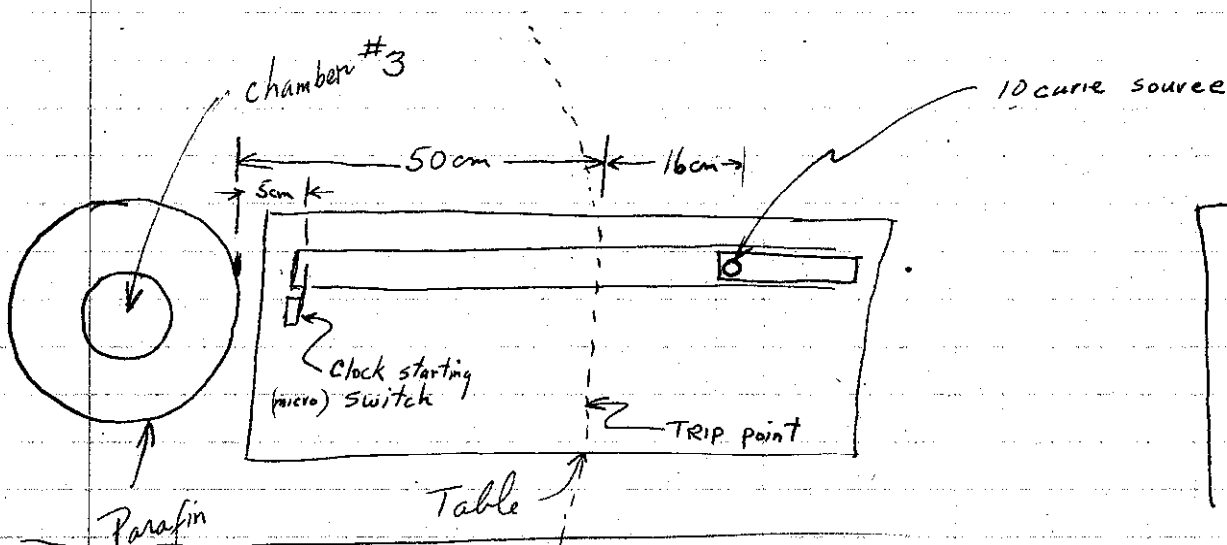 chamber #3
10 curie source
50cm
16cm
5cm
Clock starting
(micro) switch
TRIP point
Table
Parafin